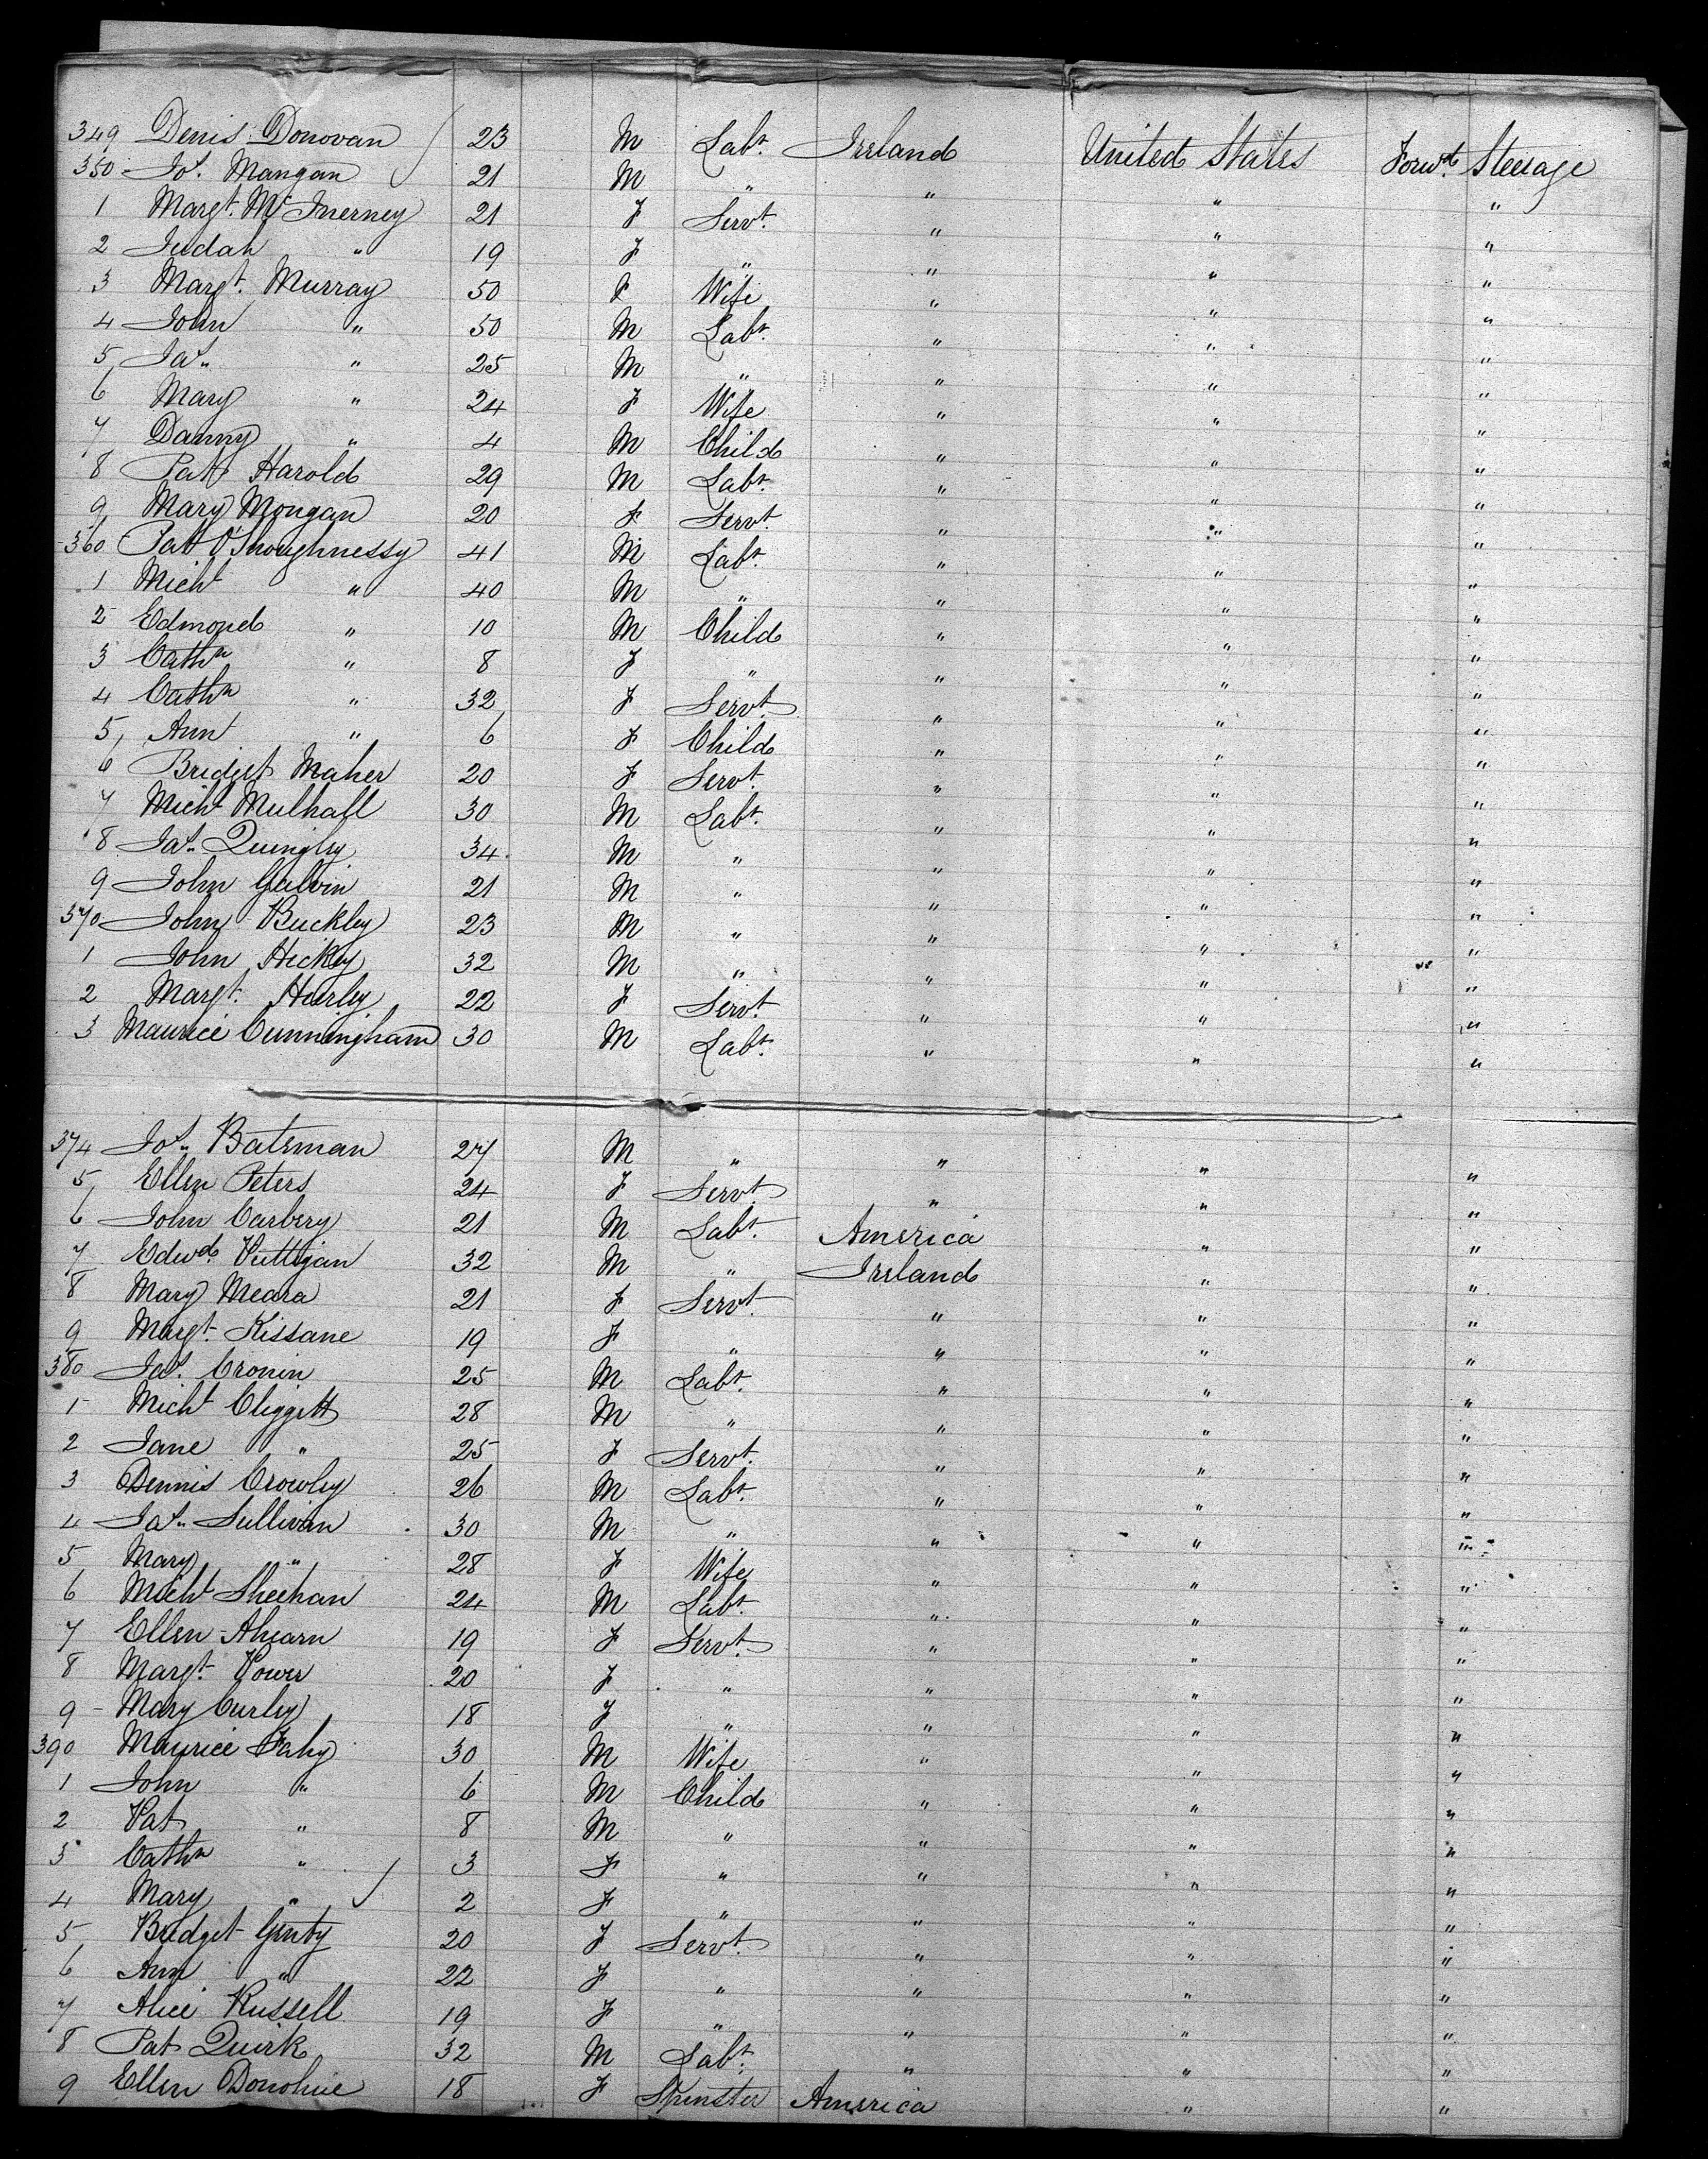 349 Denis Donovan 23 M Labr. Ireland United States Forwd. Steerage
350 Jos. Mangan 21 M " " " "
1 Margt. McInerney 21 F Servt. " " "
2 Judah " 19 F " " " "
3 Margt. Murray 50 F Wife " " "
4 John " 50 M Labr. " " "
5 Jas. " 25 M " " " "
6 Mary " 24 F Wife " " "
7 Danny " 4 M Child " " "
8 Pat Harold 29 M Labr. " " "
9 Mary Mongan 20 F Servt. " " "
360 Pat O'Shoughnessy 41 M Labr. " " "
1 Michl " 40 M " " " "
2 Edmond " 10 M Child " " "
3 Cathn " 8 F " " " "
4 Cathn " 32 F Servt. " " "
5 Ann " 6 F Child " " "
6 Bridget Maher 20 F Servt. " " "
7 Michl Mulhall 30 M Labr. " " "
8 Jas. Quingley 34 M " " " "
9 John Galvin 21 M " " " "
370 John Buckley 23 M " " " "
1 John Hickey 32 M " " " "
2 Margt. Hurley 22 F Servt. " " "
3 Maurice Cunningham 30 M Labr. " " "
374 Jos. Bateman 27 M " " " "
5 Ellen Peters 24 F Servt. " " "
6 John Carbery 21 M Labr. America " "
7 Edwd. 32 M " Ireland " "
8 Mary Meara 21 F Servt. " " "
9 Margt. Kissane 19 F " " " "
380 Jas. Cronin 25 M Labr. " " "
1 Michl Cliggett 28 M " " " "
2 Jane " 25 F Servt. " " "
3 Dennis Crowley 26 M Labr. " " "
4 Jas. Sullivan 30 M " " " "
5 Mary " 28 F Wife " " "
6 Michl Sheehan 24 M Labr. " " "
7 Ellen Ahearn 19 F Servt. " " "
8 Margt. Power 20 F " " " "
9 Mary Curley 18 F " " " "
390 Maurice Fahy 30 M Wife " " "
1 John " 6 M Child " " "
2 Pat " 8 M " " " "
3 Cathn " 3 F " " " "
4 Mary " 2 F " " " "
5 Bridget Ginty 20 F Servt. " " "
6 Ann " 22 F " " " "
7 Alice Russell 19 F " " " "
8 Pat Quirk 32 M Labr. " " "
9 Ellen Donohue 18 F Spinster America " "